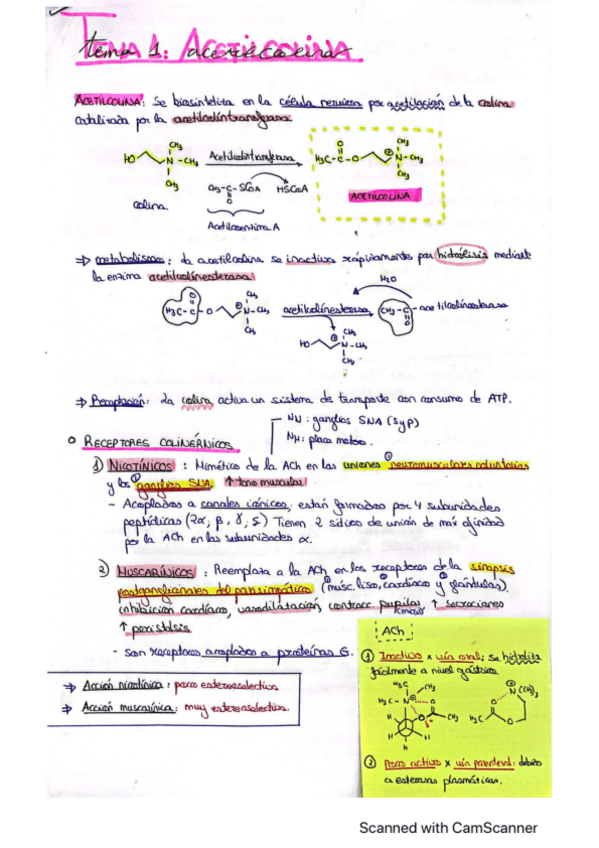 TEMA 1: ACETILCOLINA
tema 1: acetilcolina
ACETILCOLINA: Se biosintetiza en la célula nerviosa por acetilación de la colina
catalizada por la acetilcolintransferasa
HO N CH3 CH3 CH3
Acetilcolintransferasa
CH3-C-SCoA HSCoA
O
H3C-C-O N-CH3
O CH3 CH3
colina.
Acetilcoenzima A
ACETILCOLINA
⇒ metabolismo: la acetilcolina se inactiva rápidamente por hidrólisis mediante
la enzima acetilcolinesterasa
H2O
H3C-C-O N-CH3
O CH3 CH3
acetilcolinesterasa
CH3-C
O
- acetilcolinesterasa
HO N-CH3
CH3 CH3
⇒ Recaptación: La colina activa un sistema de transporte con consumo de ATP.
NN: ganglios SNA (S y P)
NM: placa motora.
○ RECEPTORES COLINÉRGICOS
1) NICOTÍNICOS: Mimético de la ACh en las uniones ① neuromusculares voluntarias
y los ② ganglios SNA. ↑ tono muscular
- Acoplados a canales iónicos: están formados por 4 subunidades
peptídicas (2α, β, γ, δ) Tienen 2 sitios de unión de más afinidad
por la ACh en las subunidades α.
2) MUSCARÍNICOS: Reemplaza a la ACh en los receptores de la sinapsis
postganglionares del parasimpático (músc. liso, cardíaco y glándulas).
inhibición cardíaca, vasodilatación, contracc. pupilar (miosis) ↑ secreciones
↑ peristalsis
- son receptores acoplados a proteínas G.
⇒ Acción nicotínica: poco estereoselectiva
⇒ Acción muscarínica: muy estereoselectiva.
ACh
① Inactivo x vía oral; se hidroliza
fácilmente a nivel gástrico.
H3C CH3
H3C-N O CH3
H H H H
H3C O O N(CH3)3
② Poco activo x vía parenteral: debido
a esterasas plasmáticas.
Scanned with CamScanner